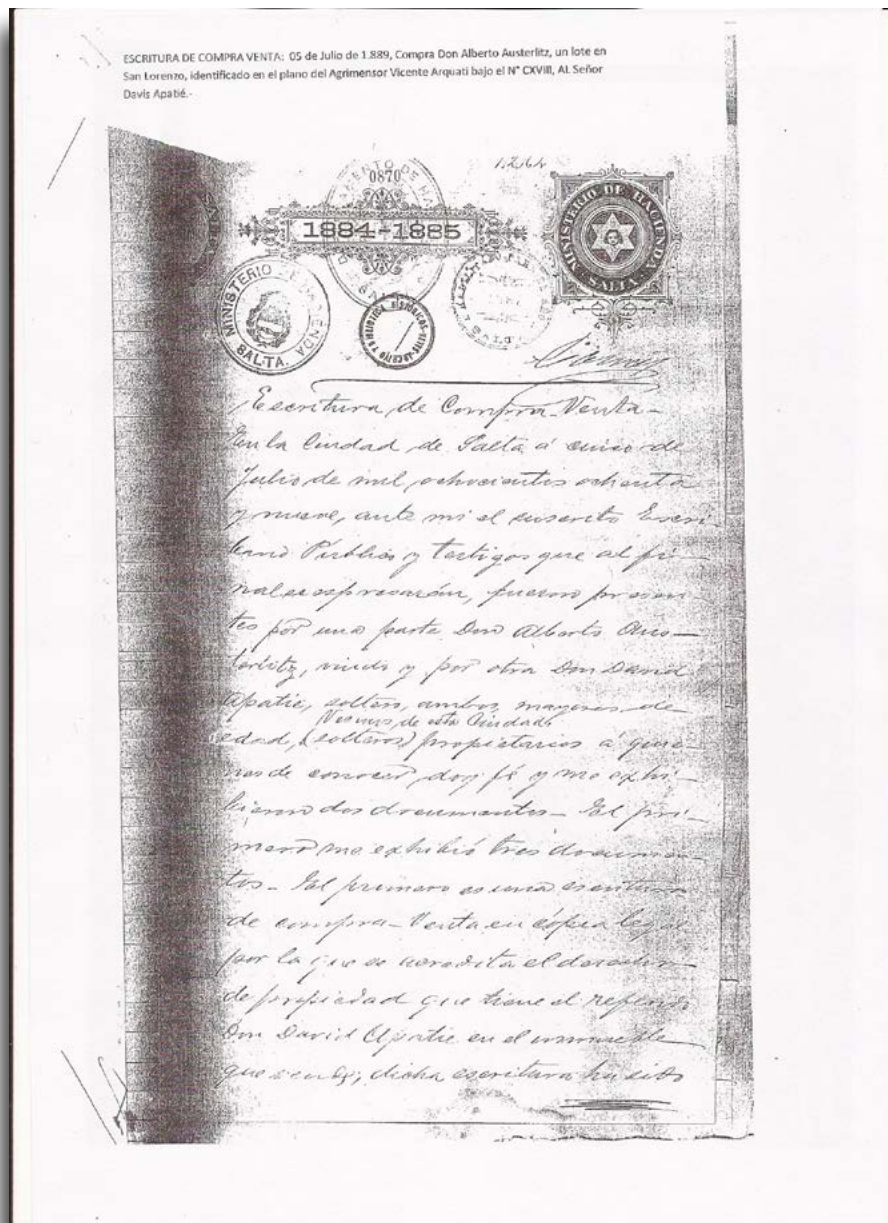 ESCRITURA DE COMPRA VENTA: 05 de Julio de 1.889, Compra Don Alberto Austerlitz, un lote en
San Lorenzo, identificado en el plano del Agrimensor Vicente Arquati bajo el N° CXVIII, AL Señor
Davis Apatié.-
0870
1884-1885
MINISTERIO DE HACIENDA
SALTA
MINISTERIO DE HACIENDA
SALTA.
Escritura de Compra-Venta-
En la Ciudad de Salta á cinco de
Julio de mil ochocientos ochenta
y nueve, ante mi el suscrito Escri
bano Público y testigos que al fi-
nal se espresarán, fueron presen-
tes por una parte Don Alberto Aus-
terlitz, viudo y por otra Don David
Apatie, soltero, ambos mayores de
Vecinos de esta Ciudad
edad, (solteros) propietarios á quie-
nes de conocer doy fé y me exhi-
bieron dos documentos- El pri-
mero me exhibió tres documen-
tos- El primero es una escritura
de compra-Venta en cópia legal
por la que se acredita el derecho
de propiedad que tiene el referido
Don David Apatie en el inmueble
que vende; dicha escritura ha sido